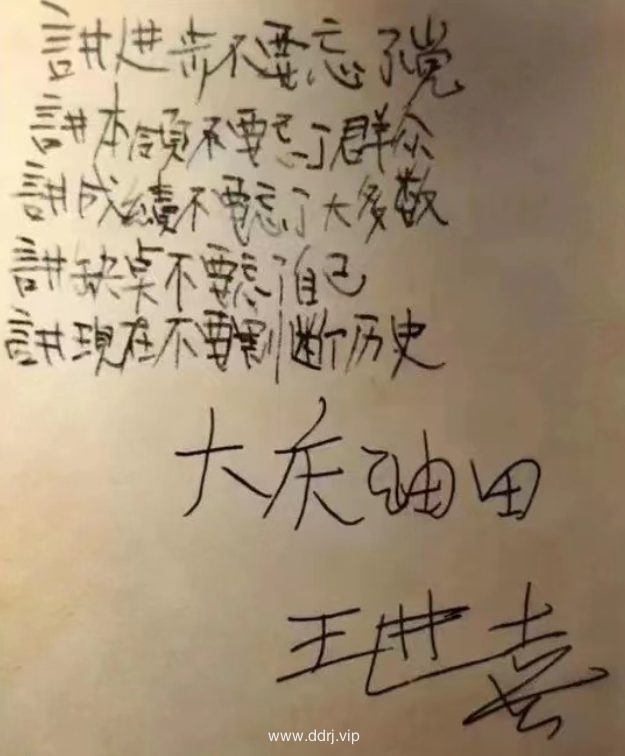 讲进步不要忘了党
讲本領不要忘了群众
讲成績不要忘了大多数
讲缺点不要忘了自己
讲現在不要割断历史
大庆油田
王进喜
www.ddrj.vip